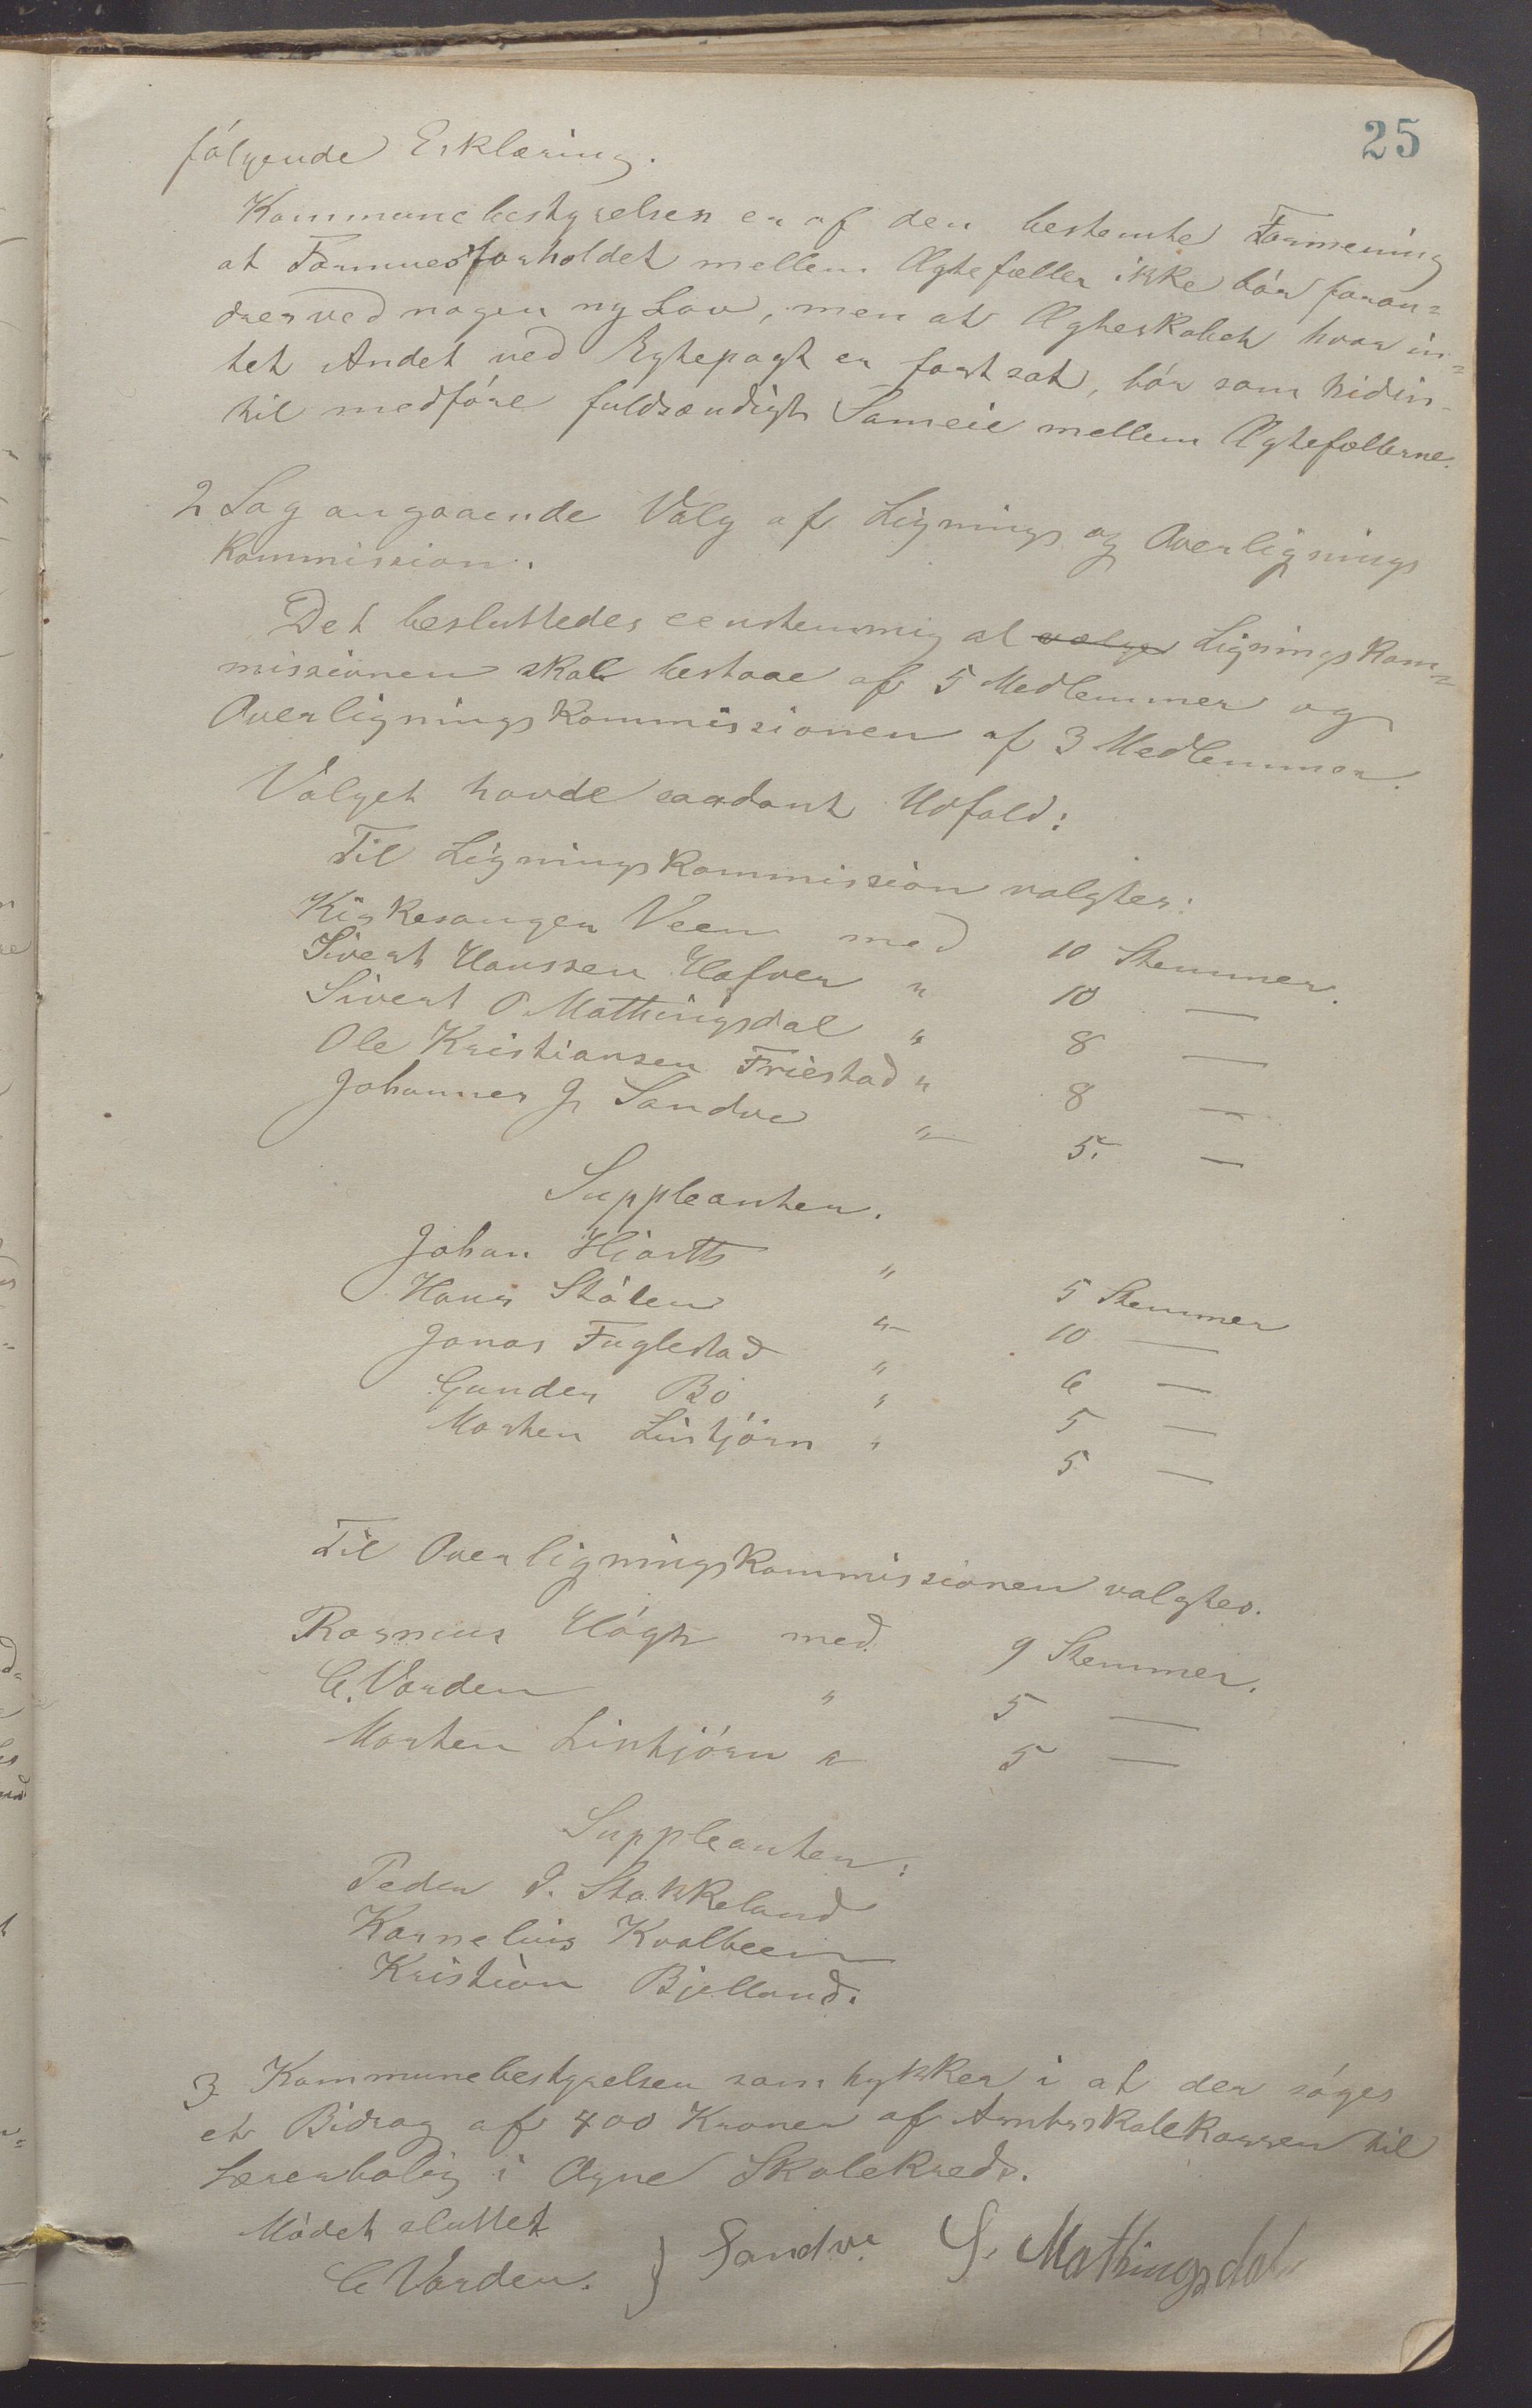 25
følgende Erklæring.
Kommunebestyrelsen er af den bestemte Formening
at Formuesforholdet mellem Ægtefæller ikke bør foran=
dres ved nogen ny Lov, men at Ægteskabet hvor in=
tet Andet ved Egtepagt er fastsat, bør som hidin-
til medføre fuldstændigt Sameie mellem Ægtefællerne.
2 Sag angaaende Valg af Lignings og Overlignings
kommission.
Det besluttedes eenstemmig at vælge Ligningskom=
missionen skal bestaae af 5 Medlemmer og
Overligningskommissionen af 3 Medlemmer.
Valget havde saadant Udfald:
Til Ligningskommission valgtes:
Kirkesanger Veen med 10 Stemmer.
Sivert Hanssen Hafver " 10 —
Sivert O Mattingsdal " 8 —
Ole Kristiansen Friestad " 8 —
Johannes J Sandve " 5. —
Suppleanter.
Johan Hjorth " 5 Stemmer
Hans Stølen " 10 —
Jonas Fuglestad " 6 —
Gunder Bø " 5 —
Morten Lintjørn " 5 —
Til Overligningskommissionen valgtes.
Rasmus Høgh med 9 Stemmer.
C. Varden " 5 —
Morten Lintjørn " 5 —
Suppleanter:
Peder I. Stokkeland
Kornelius Kvalbeen
Kristian Bjelland.
3 Kommunebestyrelsen samtykker i at der søges
et Bidrag af 400 Kroner af Amtsskolekassen til
Lærerbolig i Ogne Skolekreds.
Mødet sluttet
C Varden. J Sandve S. Mathingsdal